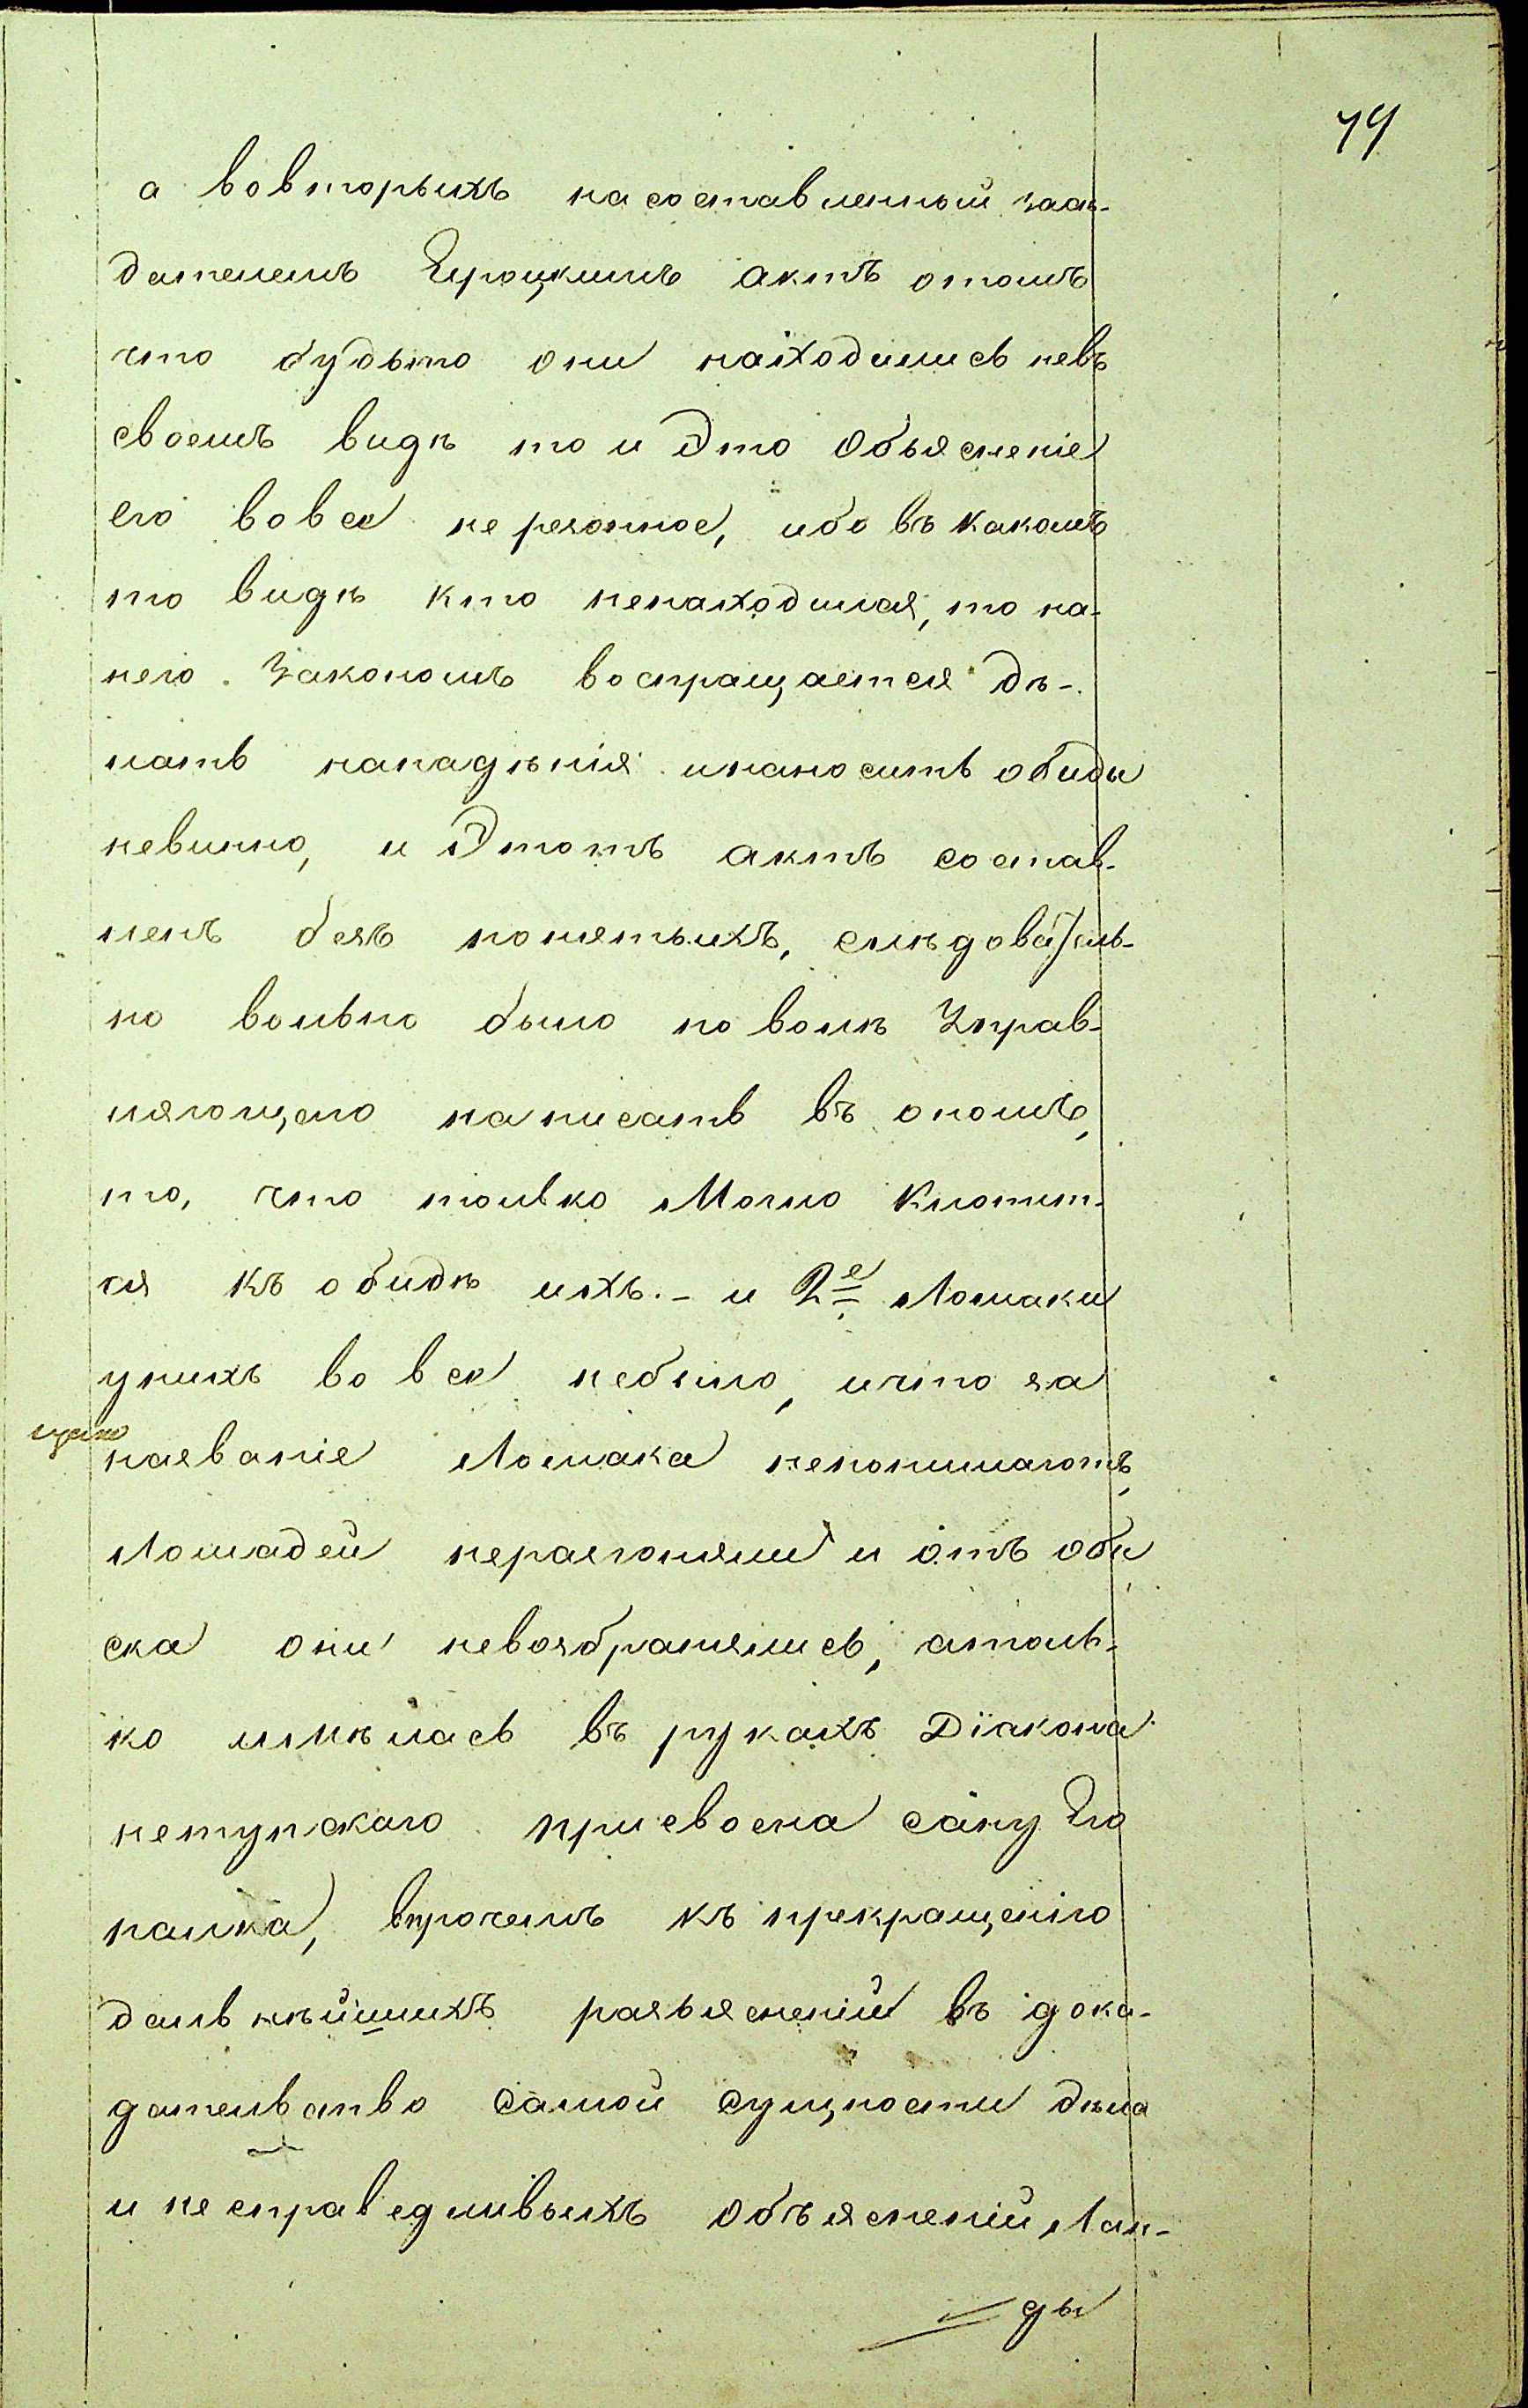 79
а вовторыхъ на составленный заль-
дателемъ Ероцкимъ актъ отомъ
что будьто они находились невъ
своемъ видѣ то и это объясненіе
его вовсе не резонное, ибо въ какомъ
то видѣ кто ненаходился, то на-
него Закономъ воспращается дѣ-
лать нападѣнія инаносить обиды
невинно, и Этотъ актъ состав-
ленъ безъ понятыхъ, слѣдователь-
но вольно было по волѣ Управ-
ляющего написать въ ономъ,
то, что только могло клонит-
ся къ обидѣ ихъ. - и 2е Ломаки
унихъ вовсе небыло, ичто за
названіе Ломака непонимаютъ,
Лошадей неразгоняли и отъ обы
ска они невозбранялись, атоль-
ко имѣлась въ рукахъ Діакона
нетунскаго присвоена сану Его
палка, впрочемъ къ прекращенію
дальнѣйшихъ разъясненій въ дока-
дательство самой сущности дѣла
и несправедливыхъ объясненій Лан-
ды